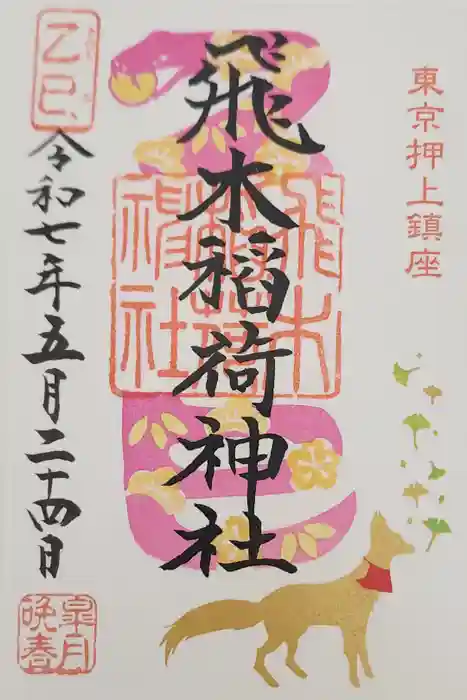 東京押上鎮座
飛木稲荷神社
飛木稲荷神社
乙巳
令和七年五月二十四日
皐月
晩春